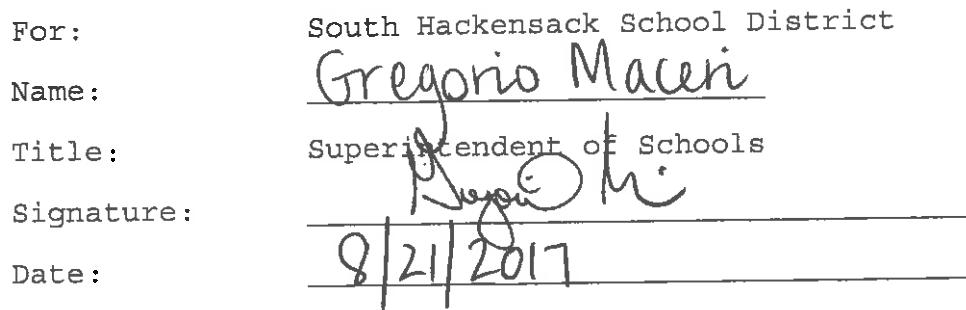 For: South Hackensack School District
Name: Gregorio Maceri
Title: Superintendent of Schools
Signature:
Date: 8/21/2017